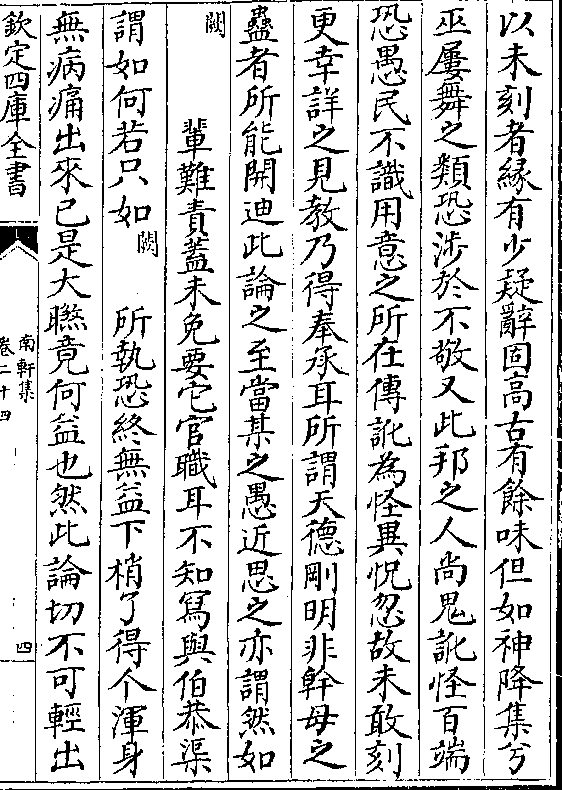 以未刻者縁有少疑辭固髙古有餘味但如神降集兮
巫屢舞之類恐涉於不敬又此邦之人尚鬼訛怪百端
恐愚民不識用意之所在傳訛為怪異怳忽故未敢刻
更幸詳之見教乃得奉承耳所謂天德剛明非幹母之
蠱者所能開迪此論之至當某之愚近思之亦謂然如
闕　　　輩難責蓋未免要它官職耳不知寫與伯恭渠
謂如何若只如闕　　所執恐終無益下梢了得个渾身
無病痛出來已是大㬠竟何益也然此論切不可輕出
欽定四庫全書
南軒集
卷二十四
四